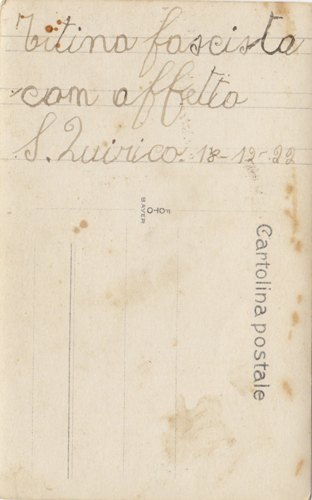 Titina fascista
con affetto
S. Quirico. 18-12-22
BAYER
Cartolina postale